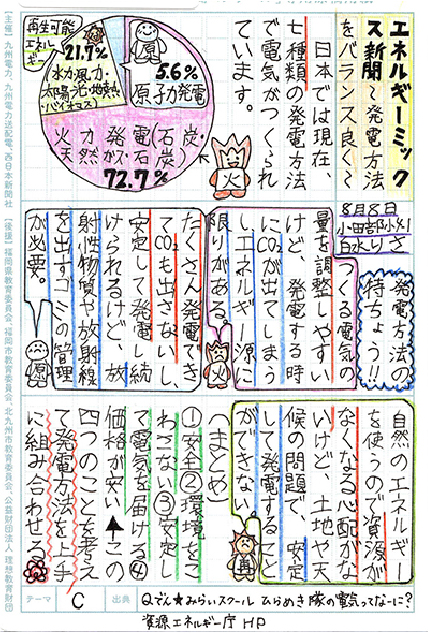 エネルギーミック
ス新聞〜発電方法
をバランス良くて
日本では現在、
七種類の発電方法
で電気がつくられ
ています。
再生可能
エネルギー
21.7%
水力・風力・
太陽光・地熱・
バイオマス
原
5.6%
原子力発電
火力発電(石炭・
天然ガス・石炭)
72.7%
火
8月8日
小田部小5
白水りさ
発電方法の
特ちょう!!
つくる電気の
量を調整しやすい
けど、発電する時
にCO₂が出てしまう
しエネルギー源に
限りがある。
火
たくさん発電でき
てCO₂も出さないし、
安定して発電し続
けられるけど、放
射性物質や放射線
を出すゴミの管理
が必要。
原
自然のエネルギー
を使うので資源が
なくなる心配がな
いけど、土地や天
候の問題で、安定
して発電すること
ができない
再
(まとめ)
①安全②環境をこ
わさない③安定し
て電気を届ける④
価格が安い↑この
四つのことを考え
て発電方法を上手
に組み合わせる
テーマ
C
出典
Qでん★みらいスクール ひらめき隊の電気ってなーに?
資源エネルギー庁HP
【主催】九州電力、九州電力送配電、西日本新聞社
【後援】福岡県教育委員会、福岡市教育委員会、北九州市教育委員会、公益財団法人 理想教育財団